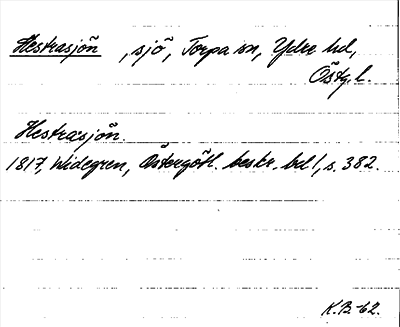 Hestrasjön, sjö, Torpa sn, Ydre hd,
Östg. l.
Hestrasjön.
1817, Widegren, Östergötl. beskr. bd 1, s. 382.
K.B-62.